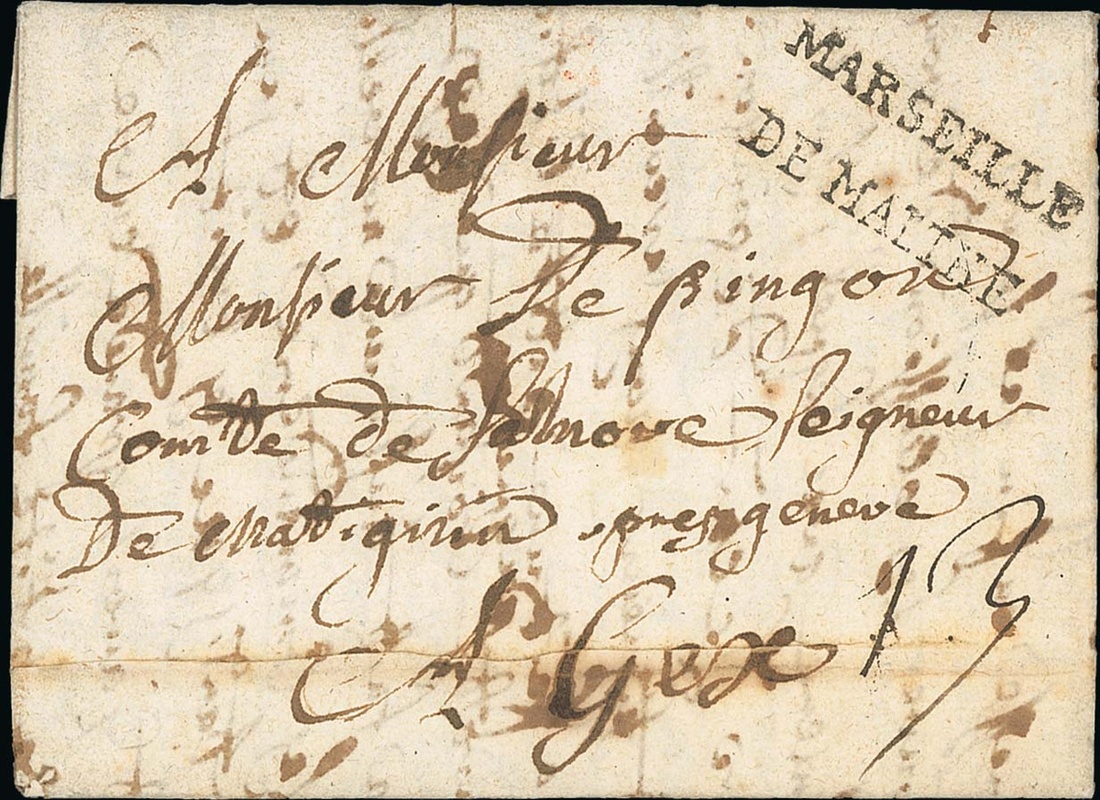 MARSEILLE
DE MALINE
A Monsieur
Monsieur De pingon
Comte de Salnove Seigneur
De prez geneve
A Gex 13